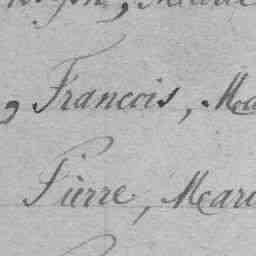 , François, Ma
Pierre, Mar